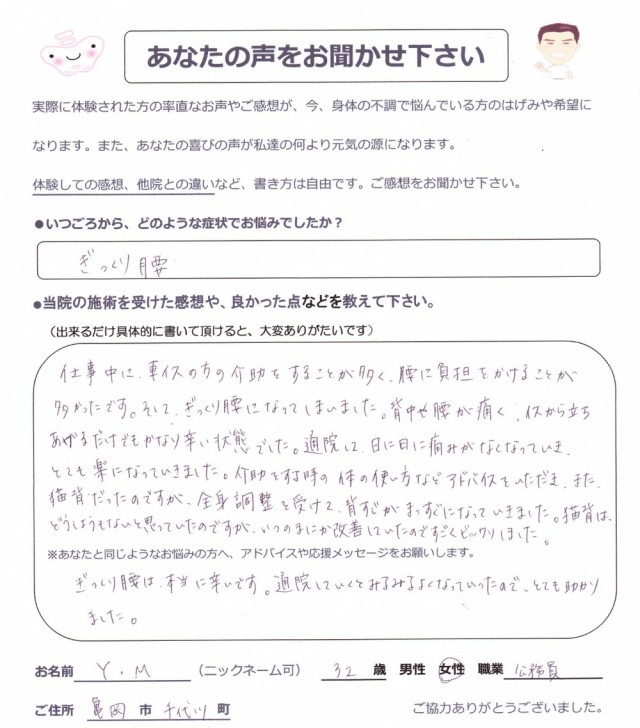 あなたの声をお聞かせ下さい
実際に体験された方の率直なお声やご感想が、今、身体の不調で悩んでいる方のはげみや希望に
なります。また、あなたの喜びの声が私達の何より元気の源になります。
体験しての感想、他院との違いなど、書き方は自由です。ご感想をお聞かせ下さい。
●いつごろから、どのような症状でお悩みでしたか？
ぎっくり腰
●当院の施術を受けた感想や、良かった点などを教えて下さい。
（出来るだけ具体的に書いて頂けると、大変ありがたいです）
仕事中に、車イスの方の介助をすることが多く、腰に負担をかけることが
多かったです。そして、ぎっくり腰になってしまいました。背中や腰が痛く、イスから立ち
あげるだけでもかなり辛い状態でした。通院して、日に日に痛みがなくなっていき、
とても楽になっていきました。介助をする時の体の使い方などアドバイスていただき、また、
猫背だったのですが、全身調整を受けて、背すじがまっすぐになっていきました。猫背は、
どうしようもないと思っていたのですが、いつのまにか改善していたのですごくビックリしました。
※あなたと同じようなお悩みの方へ、アドバイスや応援メッセージをお願いします。
ぎっくり腰は、本当に辛いです。通院していくとみるみるよくなっていったので、とても助かり
ました。
お名前 Y.M （ニックネーム可） 32 歳 男性 女性 職業 公務員
ご住所 亀岡 市 千代川 町 ご協力ありがとうございました。